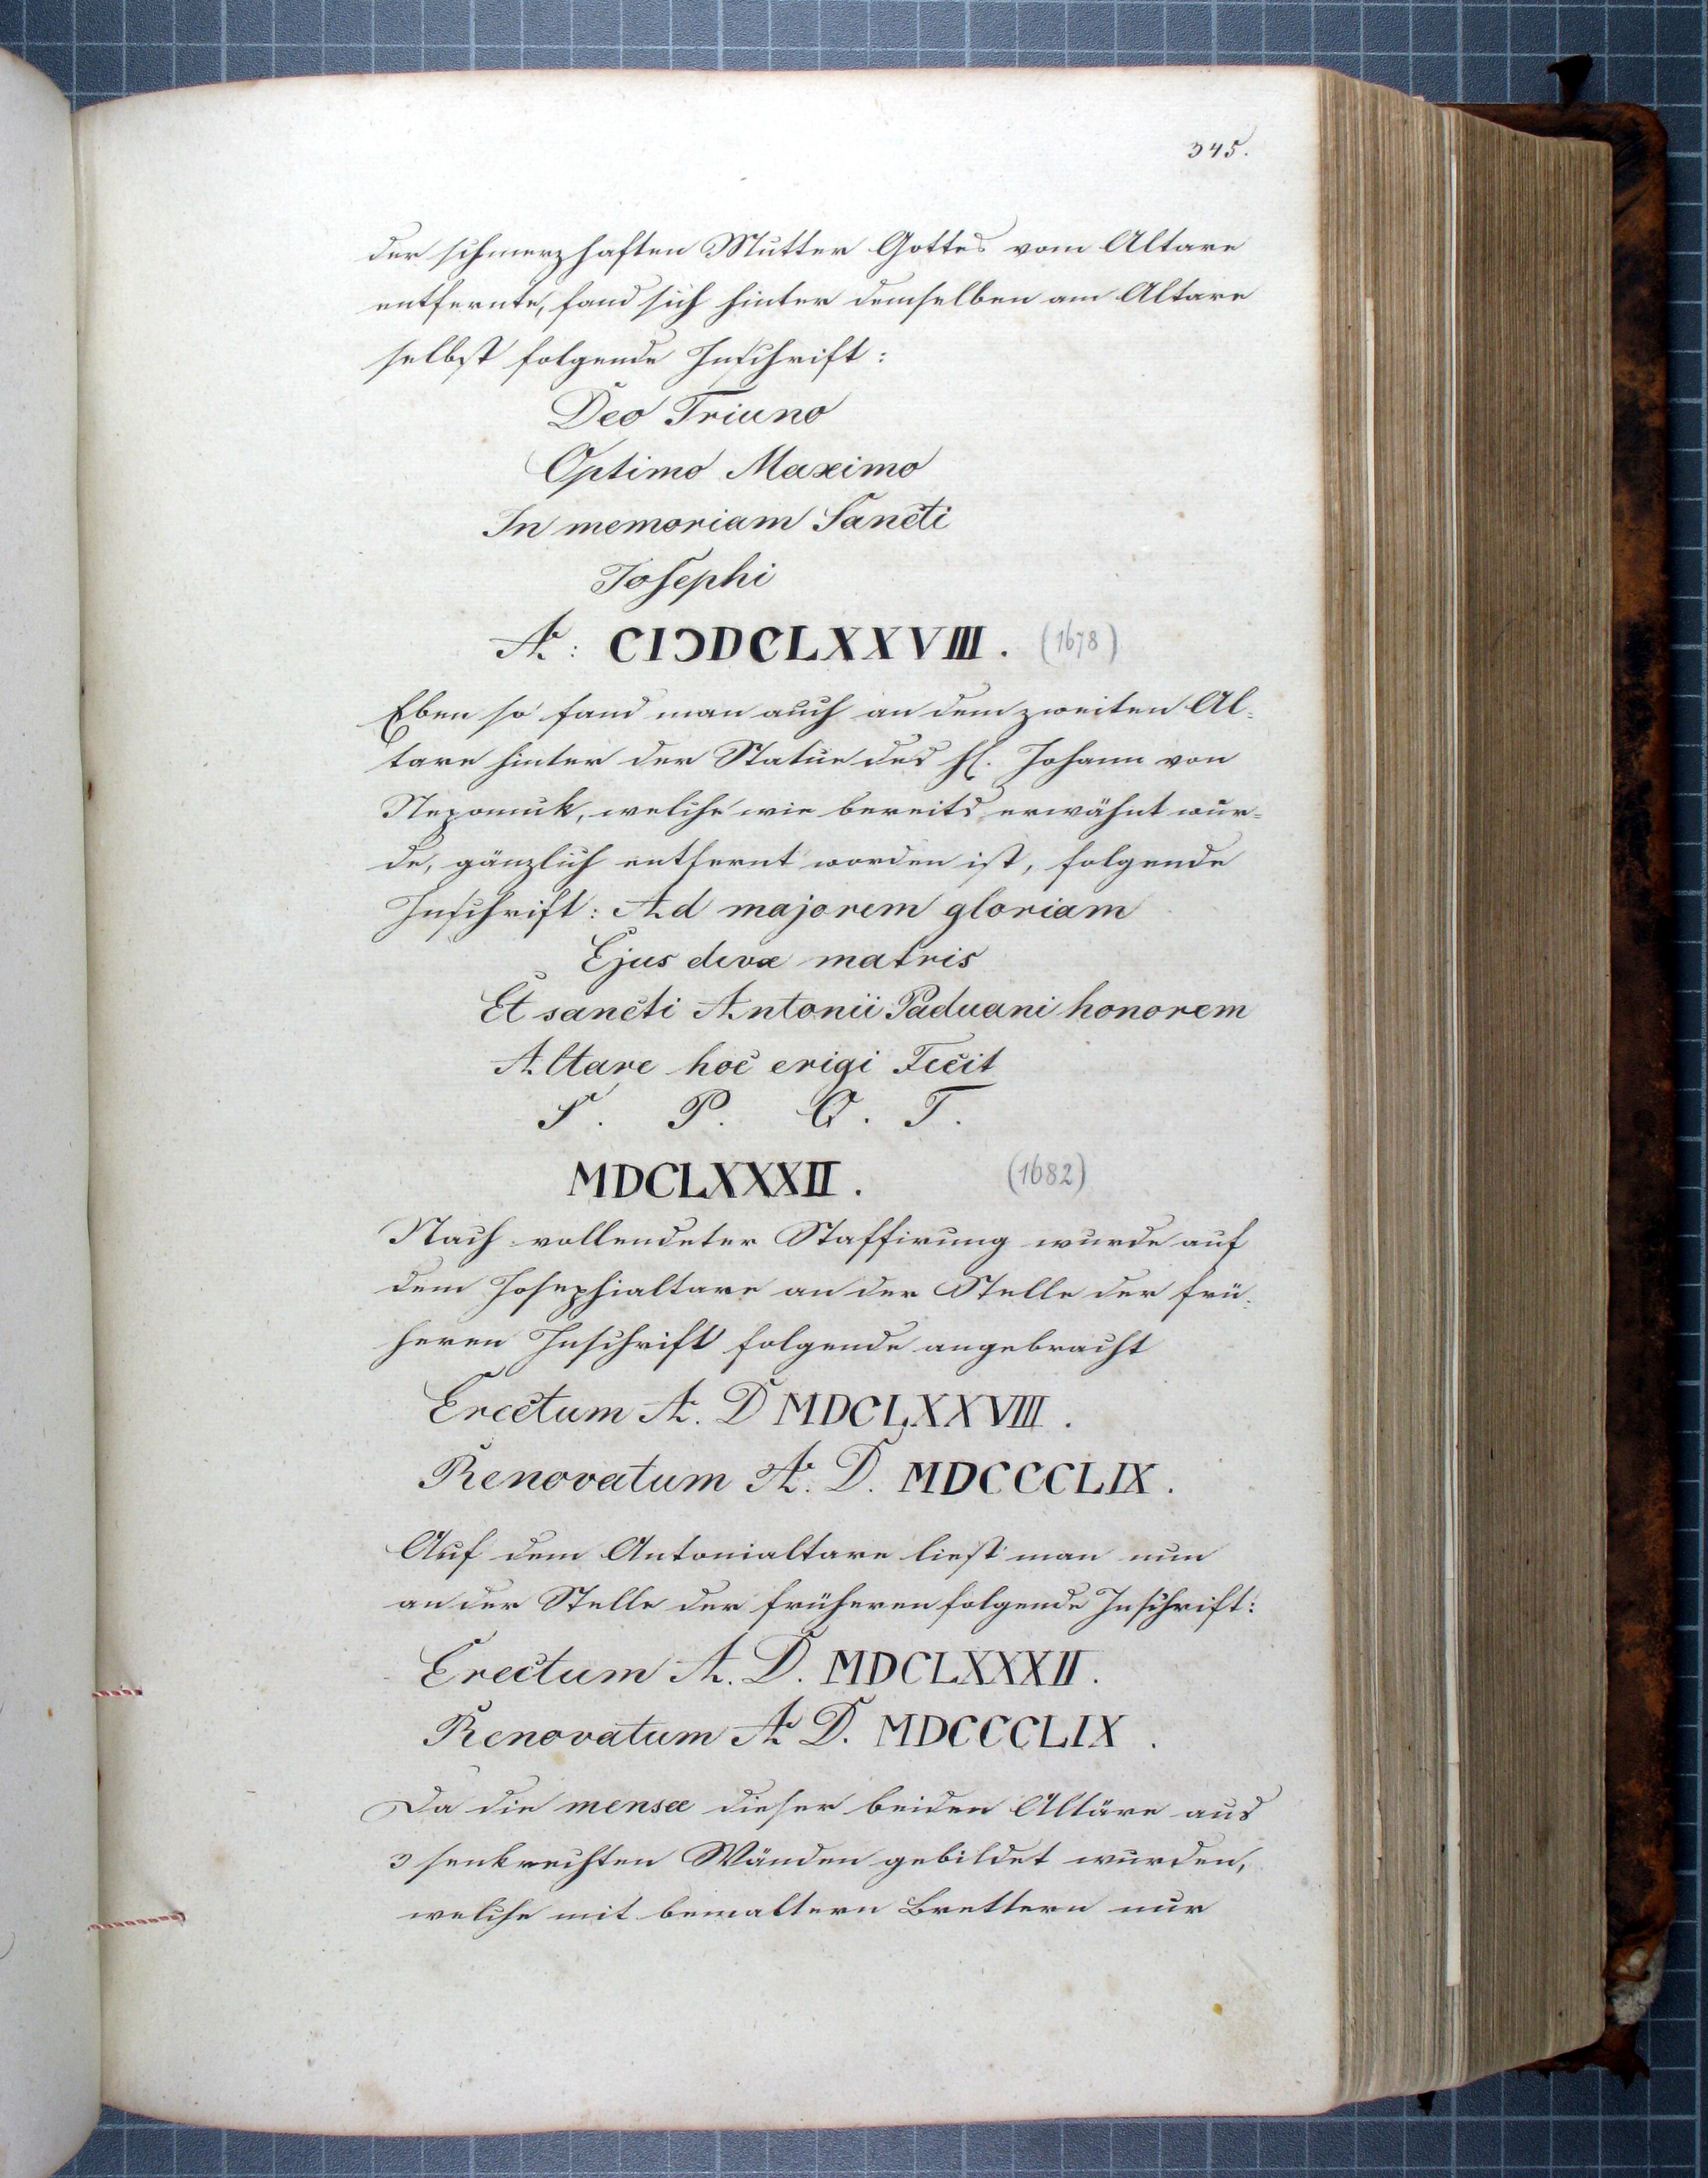 345.
der schmerzhaften Mutter Gottes vom Altare
entfernte, fand sich hinter demselben am Altare
selbst folgende Inschrift:
Deo Triuno
Optimo Maximo
In memoriam Sancti
Josephi
A: CIƆDCLXXVIII. (1678)
Eben so fand man auch an dem zweiten Al-
tare hinter der Statue des hl. Johann von
Nepomuk, welche wie bereits erwähnt wur-
de, gänzlich entfernt worden ist, folgende
Inschrift: Ad majorem gloriam
Ejus divæ matris
Et sancti Antonii Paduani honorem
Altare hoc erigi Fecit
S. P. Q. T.
MDCLXXXII. (1682)
Nach vollendeter Staffirung wurde auf
dem Josephialtare an der Stelle der frü-
heren Inschrift folgende angebracht
Erectum A. D MDCLXXVIII.
Renovatum A. D. MDCCCLIX.
Auf dem Antonialtare liest man nun
an der Stelle der früheren folgende Inschrift:
Erectum A. D. MDCLXXXII.
Renovatum A D. MDCCCLIX.
Da die mensæ dieser beiden Altäre aus
3 senkrechten Wänden gebildet wurden,
welche mit bemaltern Brettern nur